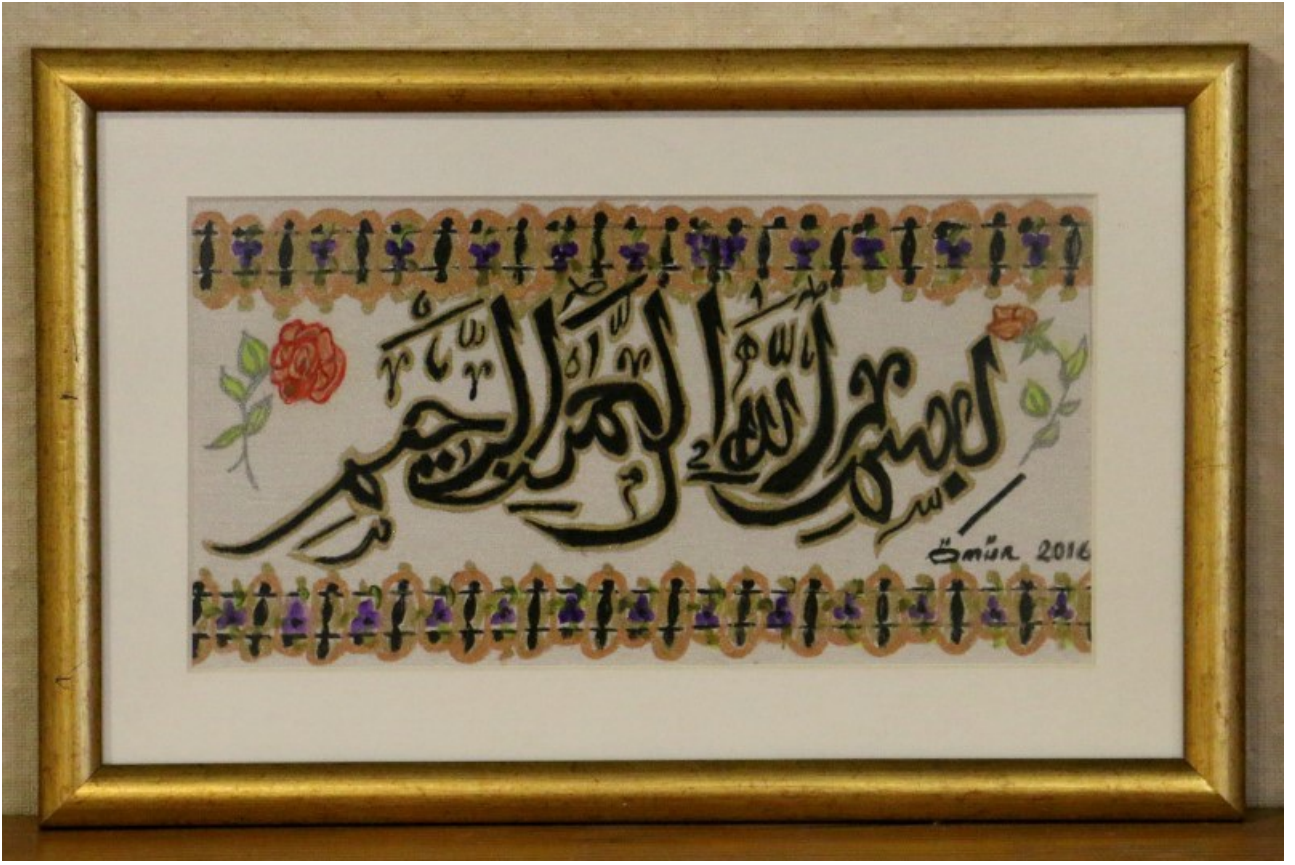 بسم الله الرحمن الرحيم
ömür 2016